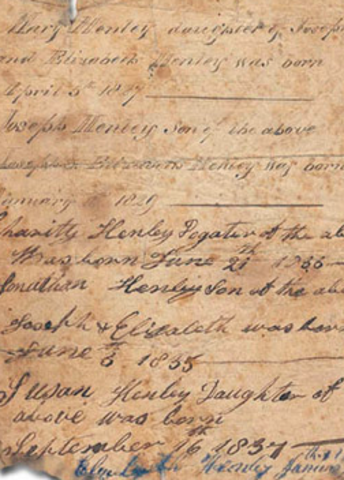 Mary Henley daughter of Joseph
and Elizabeth Henley was born
April 5th 1827
Joseph Henley Son of the above
Joseph & Elizabeth Henley was born
January 1829
Charity Henley Dogater of the abo
Was born June 21th
Jonathan Henley Son of the abo
Joseph & Elizabeth was born
June 3 1835
Susan Henley Daughter of
above was born
September 16th 1837
Henley Janua